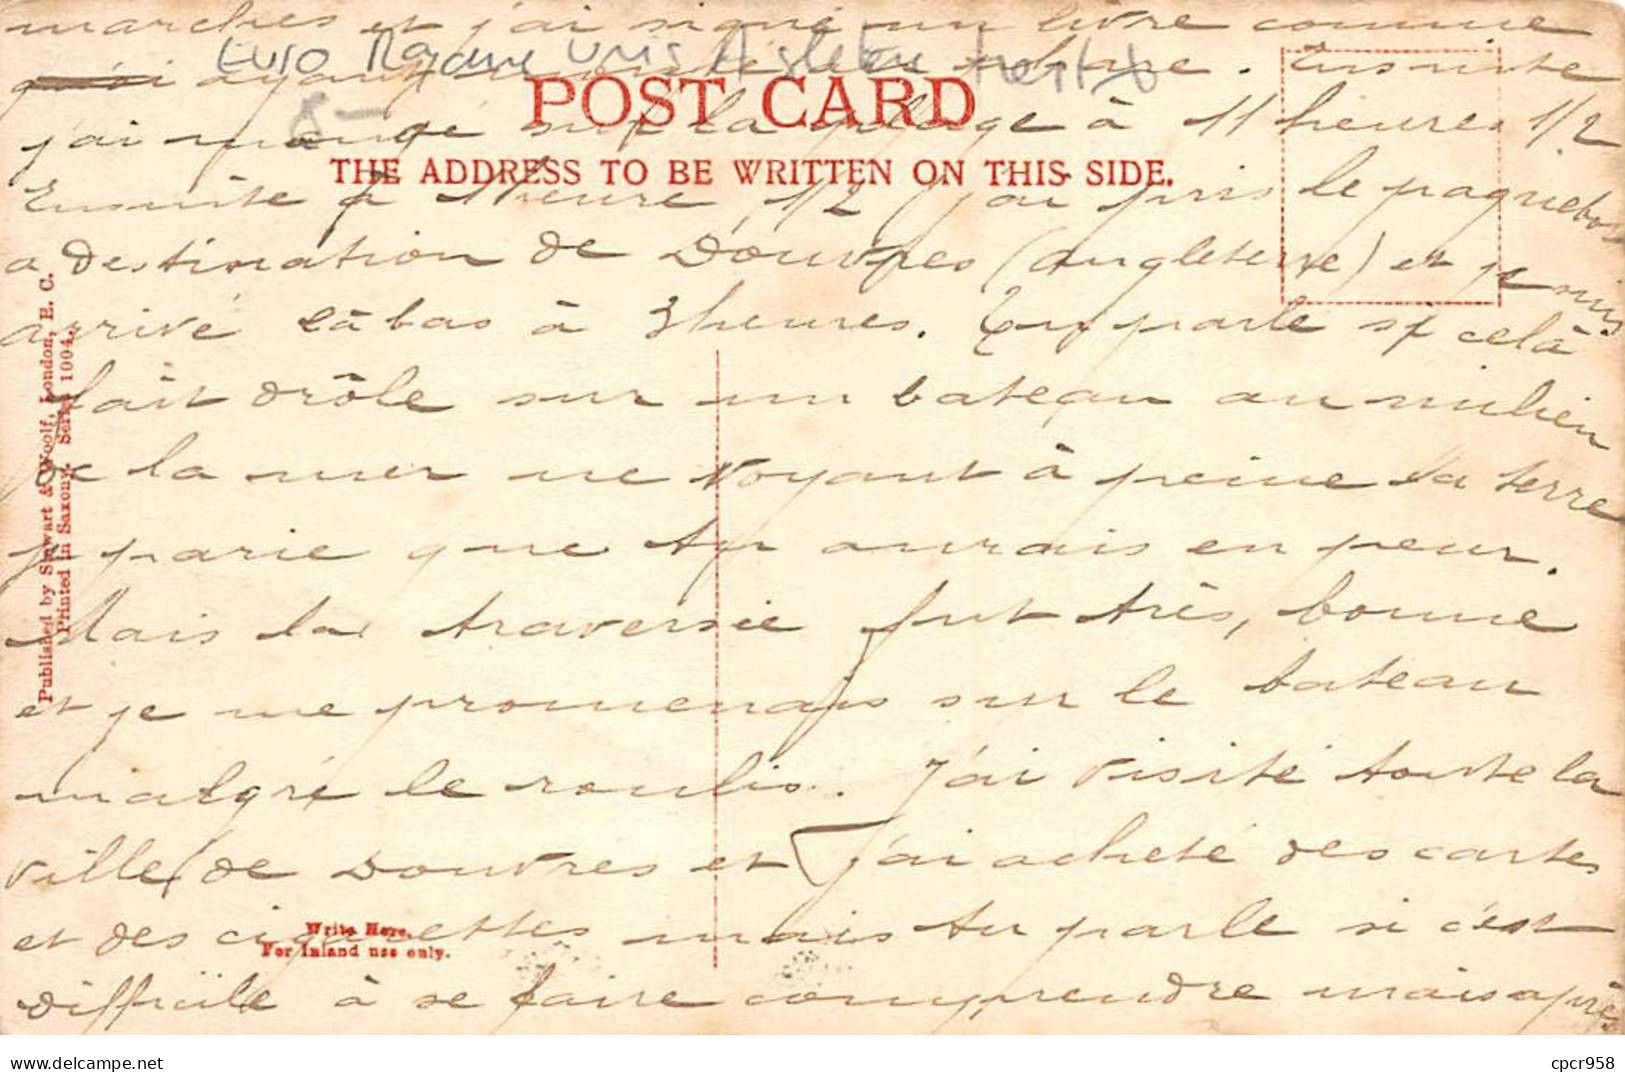 marches et j'ai signé un livre comme
quoi ayant visité le phare. Ensuite
POST CARD
j'ai mangé sur la plage à 11 heures 1/2
THE ADDRESS TO BE WRITTEN ON THIS SIDE.
Ensuite à 1 heure 1/2 j'ai pris le paquebot
a destination de Douvres (angleterre) et je suis
arrivé là bas à 3 heures. Tu parle si celà
fait drôle sur un bateau au milieu
de la mer ne voyant à peine la terre
je parie que tu aurais eu peur.
Mais la traversée fut très, bonne
et je me promenais sur le bateau
malgré le roulis. J'ai visité toute la
ville de Douvres et j'ai acheté des cartes
et des cigarettes mais tu parle si c'est
difficile à se faire comprendre mais après
Write Here.
For Inland use only.
Published by Stewart & Woolf, London, E. C.
Printed in Saxony. Series 1004.
delcampe.net
cpcr958